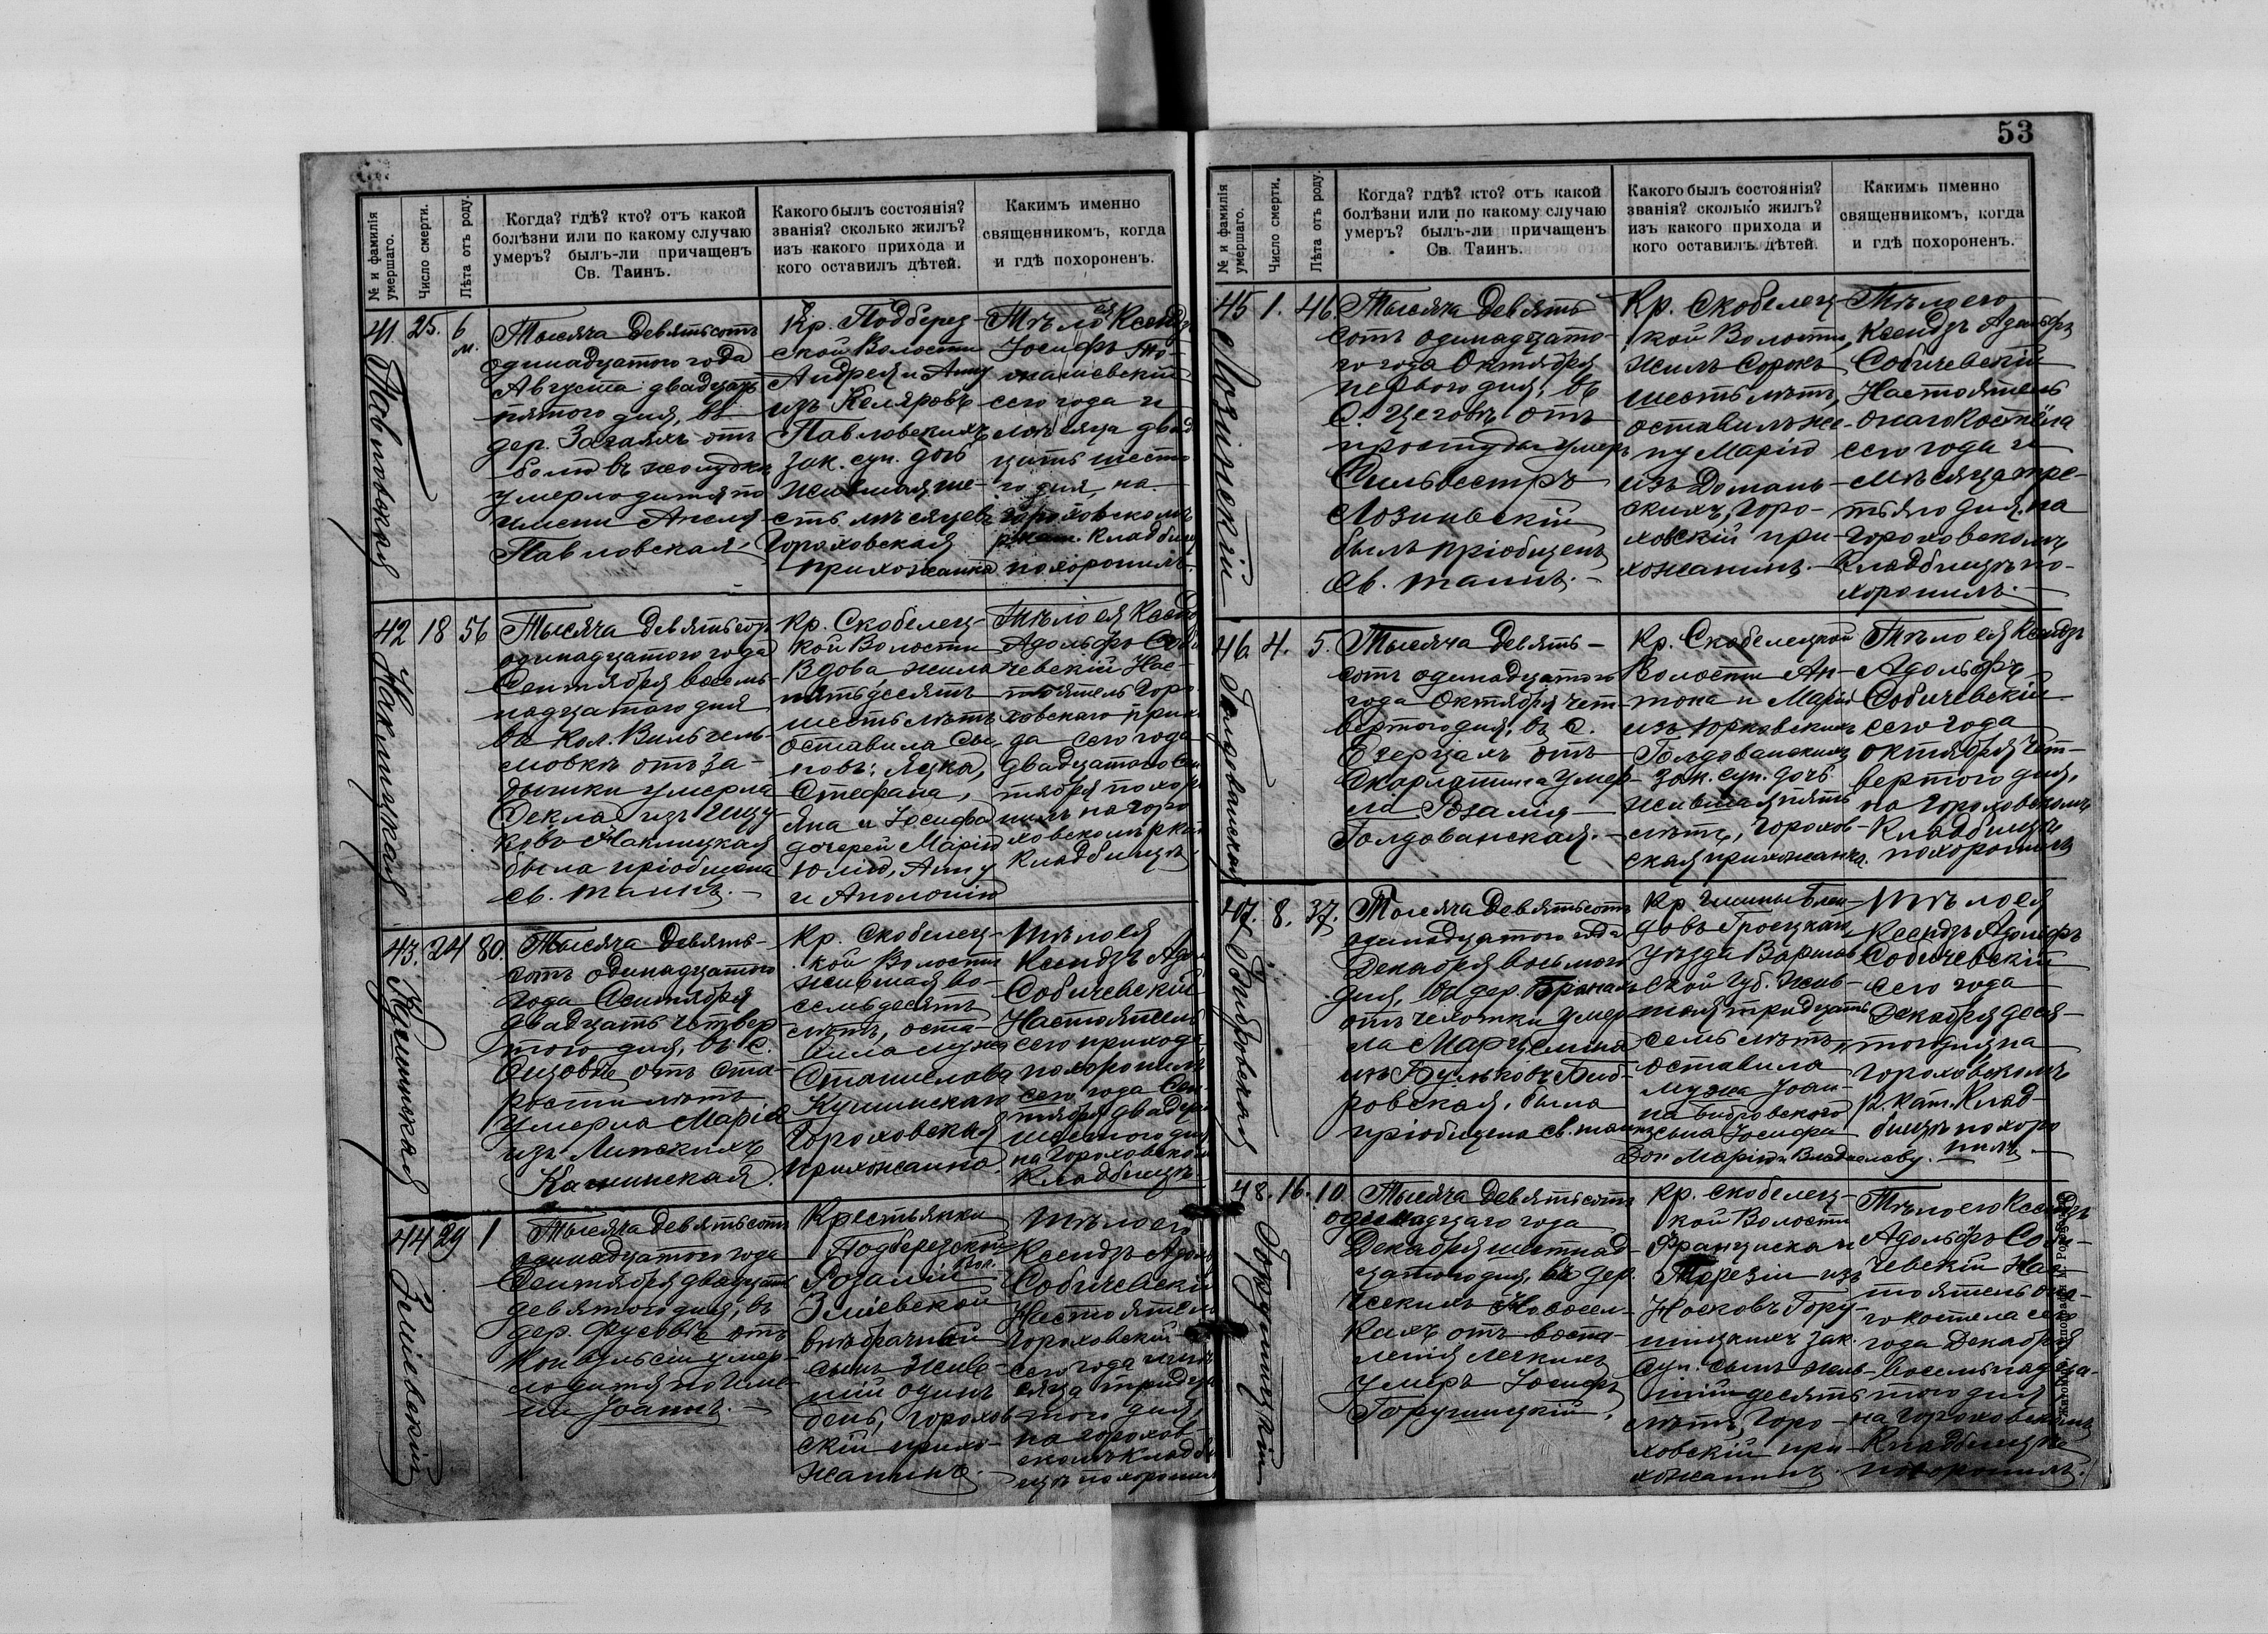 № и фамилія умершаго.
Число смерти.
Лѣта отъ роду.
Когда? гдѣ? кто? отъ какой
болѣзни или по какому случаю
умеръ? былъ-ли причащенъ
Св. Таинъ.
Какого былъ состоянія?
званія? сколько жилъ?
изъ какого прихода и
кого оставилъ дѣтей.
Какимъ именно
священникомъ, когда
и гдѣ похороненъ.
41. Павловская
25.
6 м.
Тысяча девятьсотъ
одинадцатого года
Августа двадцать
пятого дня, въ
дер. Загаяхъ отъ
боли въ желудкѣ
умерло дитя по
имени Анеля
Павловская
Кр. Подберез-
ской Волости
Андрея и Анны
изъ Келяровъ
Павловскихъ
зак. суп. дочь
жившая ше-
сть мѣсяцевъ
Гороховская
прихожанка
Тѣло ея Ксендзъ
Іосифъ
сего года и
мѣсяца двад
цать шесто
го дня, на
Гороховскомъ
р. кат. кладбищѣ
похоронилъ.
42
18
56
Тысяча девятьсотъ
одинадцатого года
Сентября восем-
надцатого дня
въ кол. Вильгель-
мовкѣ отъ за-
дышки умерла
Текла изъ
была пріобщена
св. таинъ.
Кр. Скобелец-
кой Волости
Вдова, жила
пятьдесятъ
шесть лѣтъ
оставила сы-
новъ: Яцка,
Стефана,
Яна и Іосифа
дочерей Марію
Юлію, Анну
и Аполонію
Тѣло ея Ксендзъ
Адольфъ Соби
чевскій Нас-
тоятель Горо
ховскаго прихо
да сего года
двадцатого Сен
тября похоро
нилъ на Горо
ховскомъ ркат
кладбищѣ
43.
24
80.
Тысяча девять-
сотъ одинадцатого
года Сентября
двадцать четвер
того дня, въ с.
отъ ста-
рости лѣтъ
умерла Марія
изъ Липскихъ
Кр. Скобелец-
кой Волости
жившая во-
семьдесятъ
лѣтъ, оста-
вила мужа
Станислава
Гороховская
прихожанка.
Тѣло ея
Ксендзъ Адол
Собичевскій
Настоятель
сего прихода
похоронилъ
сего года Сен-
тября двадцать
шестого дня
на Гороховском
кладбищѣ
44
29
1
Тысяча девятьсотъ
одинадцатого года
Сентября двадцать
девятого дня, въ
дер. Фусовъ отъ
Конвульсіи умер-
ло дитя по име-
ни Іоаннъ.
Крестьянки
Подберезской
Вол.
Розаліи
Зміевской
внѣбрачный
сынъ живъ-
шій одинъ
день, Горохов
скій прихо-
жанинъ.
Тѣло его
Ксендзъ Адоль
Собичевскій
Настоятель
Гороховскій
сего года и мѣ
сяца тридца
того дня,
на Горохов-
скомъ кладби
щѣ похоронилъ
53
№ и фамилія умершаго.
Число смерти.
Лѣта отъ роду.
Когда? гдѣ? кто? отъ какой
болѣзни или по какому случаю
умеръ? былъ-ли причащенъ
Св. Таинъ.
Какого былъ состоянія?
званія? сколько жилъ?
изъ какого прихода и
кого оставилъ дѣтей.
Какимъ именно
священникомъ, когда
и гдѣ похороненъ.
45 Лозинскій
1.
46.
Тысяча девять
сотъ одинадцато-
го года Октября
перваго дня, въ
с. Цеговъ отъ
простуды умеръ
Сильвестръ
Лозинскій
былъ пріобщенъ
св. таинъ.
Кр. Скобелец-
кой Волости,
жилъ сорокъ
шесть лѣтъ,
оставилъ же-
ну Марію
изъ Доман-
скихъ, Горо-
ховскій при-
хожанинъ.
Тѣло его
Ксендзъ Адольфъ
Собичевскій
Настоятель
онаго костела
сего года и
мѣсяца тре-
тьяго дня, на
Гороховскомъ
кладбищѣ по-
хоронилъ.
46. Голдованская
4.
5.
Тысяча девять-
сотъ одинадцатого
года Октября чет-
вертого дня, въ с.
Озерцахъ отъ
Скарлатина умер-
ла Розалія
Голдованская.
Кр. Скобелецкой
Волости Ан-
тона и Маріи
изъ Юрковскихъ
Голдованскихъ
зак. суп. дочь
жившая пять
лѣтъ, Горохов-
ская прихожанка.
Тѣло ея Ксендзъ
Адольфъ
Собичевскій
сего года
октября чет-
вертого дня,
на Гороховскомъ
кладбищѣ
похоронилъ
47.
8.
37.
Тысяча девятьсотъ
одинадцатого года
Декабря восьмого
дня, въ дер.
отъ чехотки умер
ла Марцелина
изъ Бульковъ Биб-
ровская, была
пріобщена св. таинъ
Кр. Гмины
Гроецкаго
уѣзда Варшав
ской губ. жив-
шая тридцать
семь лѣтъ,
оставила
мужа Іоан-
на Бибровского
сына Іосифа
Доч Марію и Владиславу.
Тѣло ея
Ксендзъ Адольфъ
Собичевскій
сего года
Декабря деся-
того дня на
Гороховскомъ
р. кат. клад-
бищѣ похоро
нилъ.
48.
16.
10.
Тысяча девятьсотъ
одинадцаго года
Декабря шестнад-
цатого дня, въ дер.
Новосел-
кахъ отъ воспа-
ленія легкихъ
умеръ Іосифъ
Кр. Скобелец-
кой Волости
Француска и
Терезіи изъ
Носковъ Гору-
зак.
суп. сынъ жив-
шій десять
лѣтъ, Горо-
ховскій при-
хожанинъ.
Тѣло его Ксендзъ
Адольфъ Соби-
чевскій Нас-
тоятель она-
го костела сего
года Декабря
восемнадца-
того дня
на Гороховскомъ
кладбищѣ
похоронилъ.